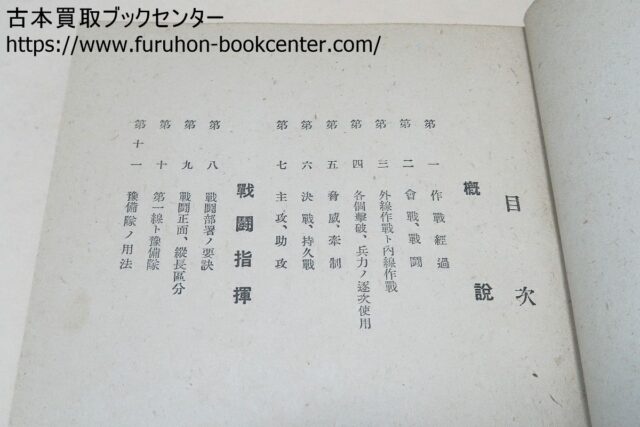 古本買取ブックセンター
https://www.furuhon-bookcenter.com/
目次
概説
第一 作戰經過
第二 會戰、戰鬪
第三 外線作戰ト內線作戰
第四 各個擊破、兵力ノ逐次使用
第五 脅威、牽制
第六 決戰、持久戰
第七 主攻、助攻
戰鬪指揮
第八 戰鬪部署ノ要訣
第九 戰鬪正面、縱長區分
第十 第一線ト豫備隊
第十一 豫備隊ノ用法